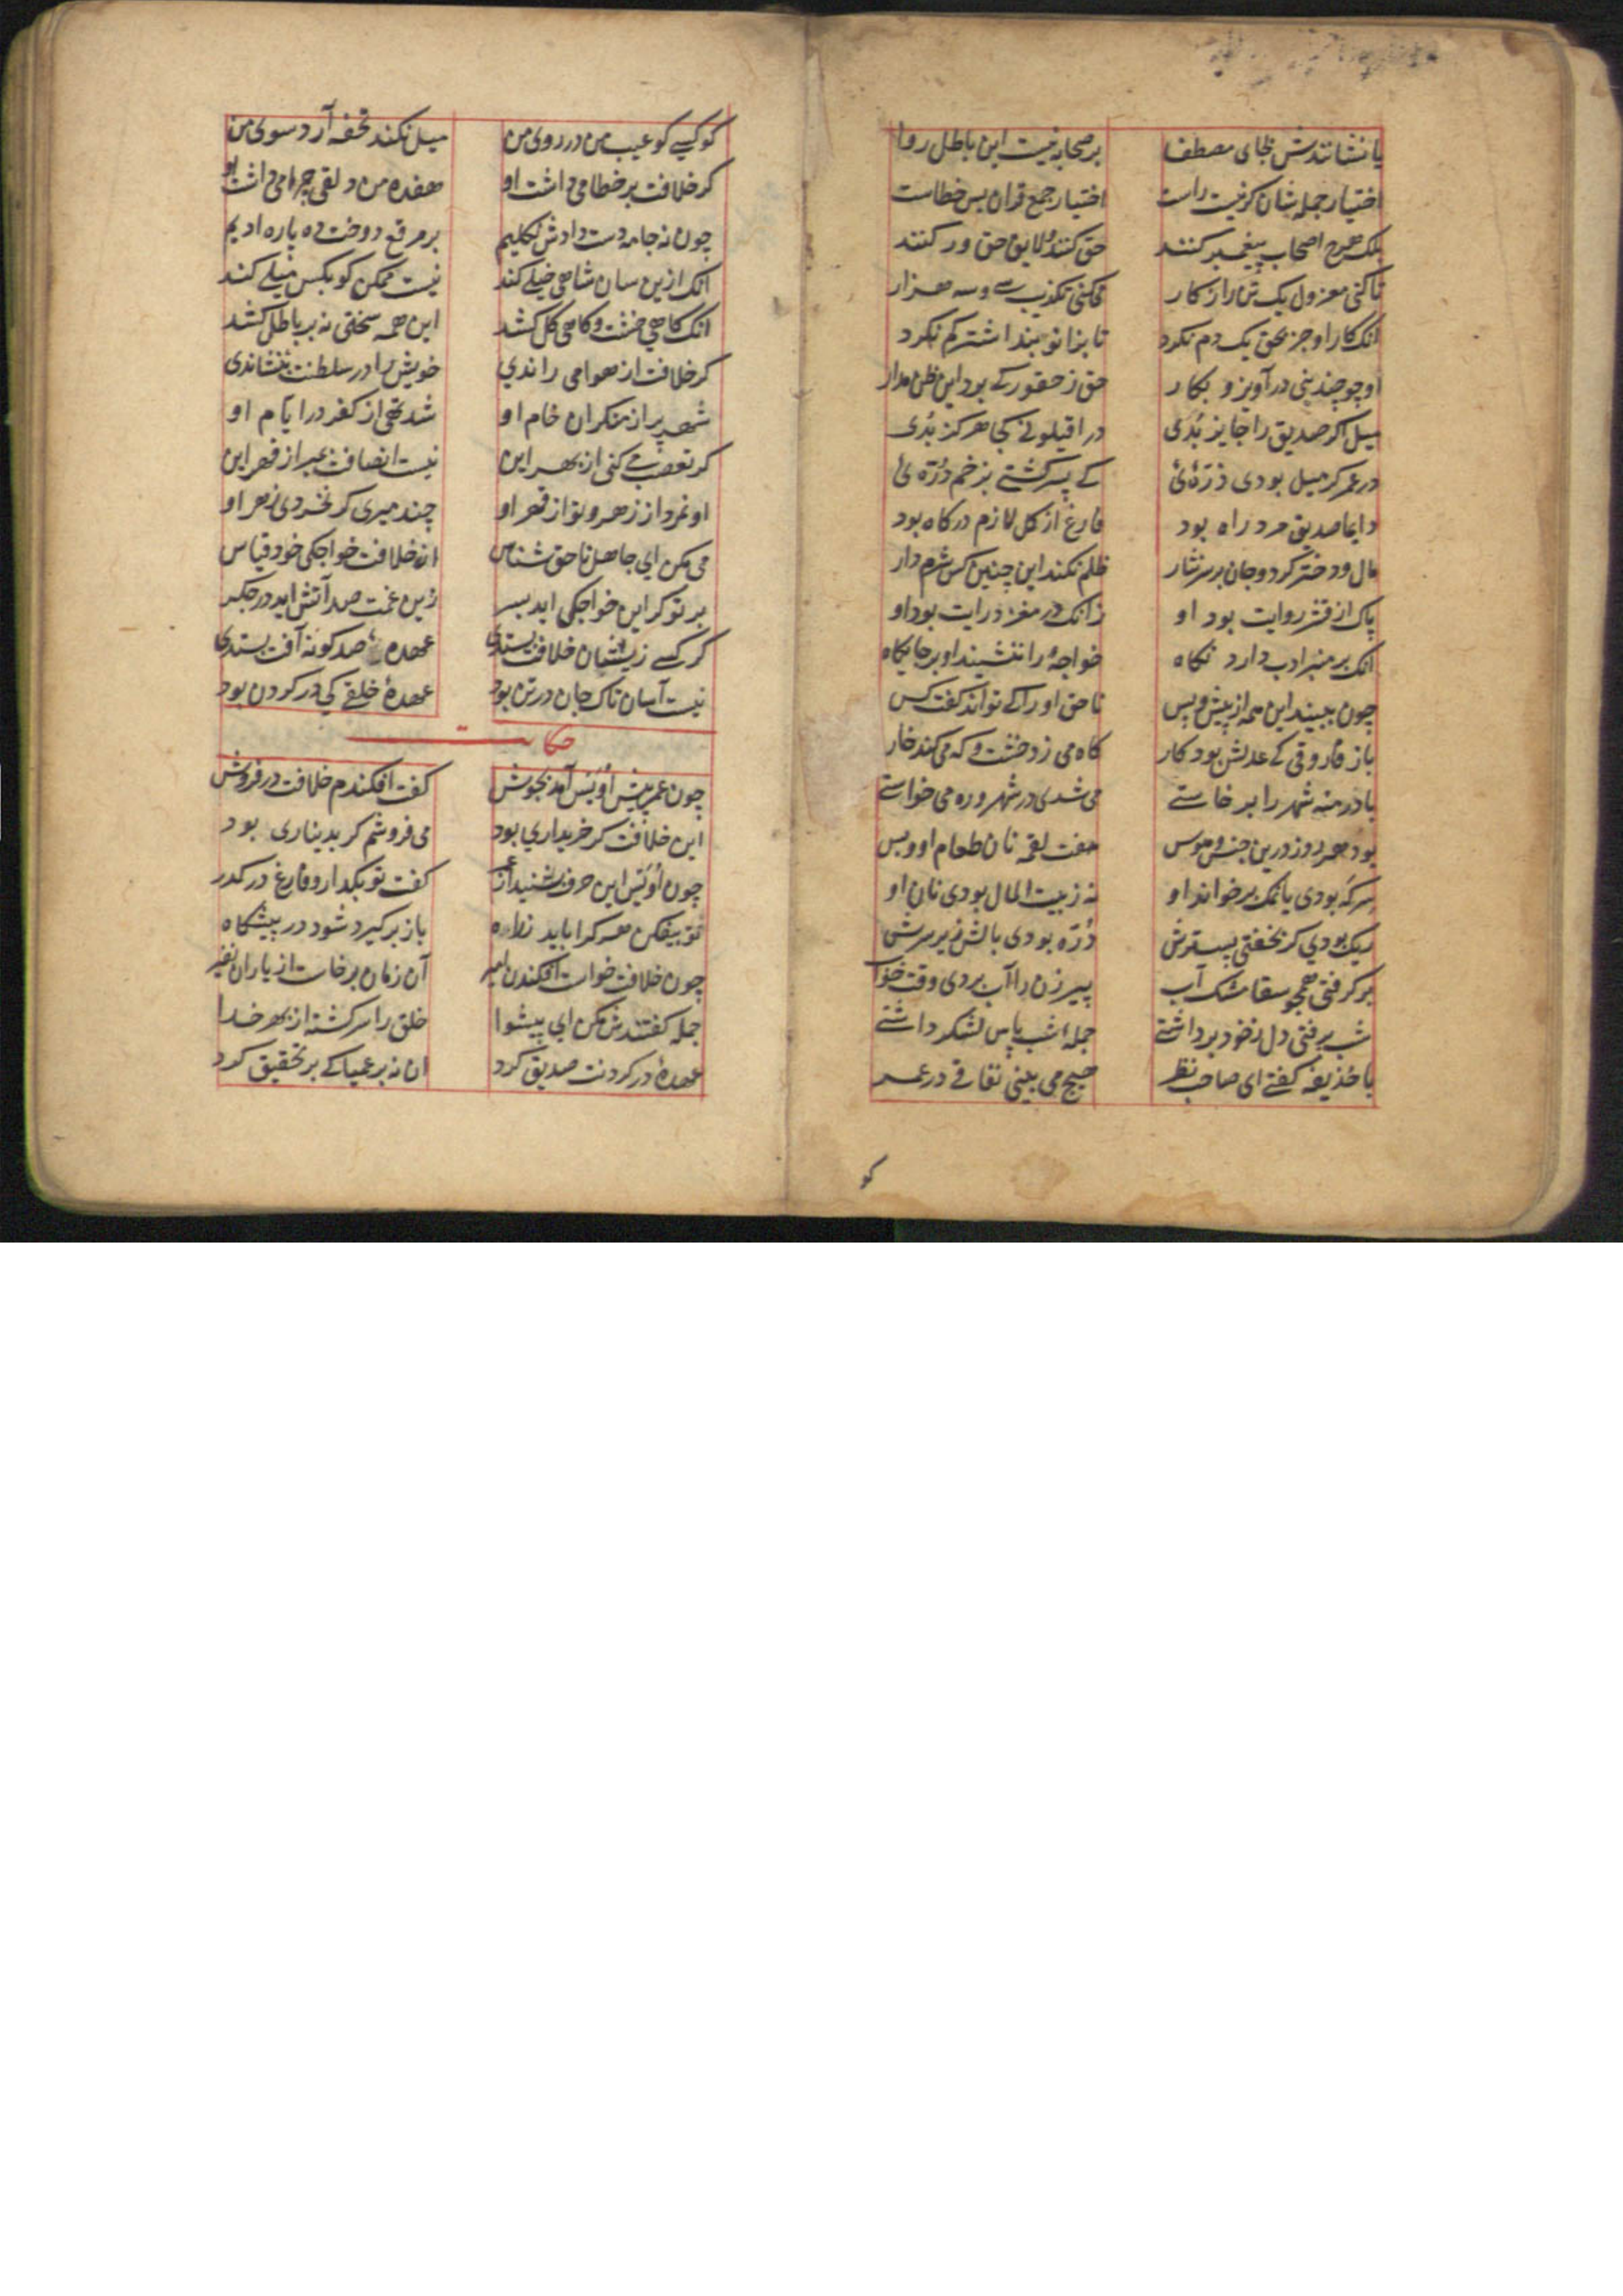 یا نشانندش بجای مصطفا بر صحابه نیست این باطل روا
اختیار جمله شان کر نیست راست اختیار جمع قران بس خطاست
بلک هرچ اصحاب پیغمبر کنند حق کنند و لایق حق ور کنند
تا کنی معزول یک تن را ز کار می کنی تکذیب سی و سه هزار
انک کار او جز بحق یک دم نکرد تا بزانو بند اشتر کم نکرد
او چو چندینی در آویزد بکار حق ز حق ور کی برد این ظن مدار
میل اکر صدیق را جایز بُدی در اقیلونی کجا هرکز بُدی
در عمر کر میل بودی ذرّهٔ کی پسر کشتی بزخم دُرّهٔ
دایما صدیق مرد راه بود فارغ از کل لازم درکاه بود
مال و دختر کرد و جان بر سر نثار ظلم نکند این چنین کس شرم دار
پاک از قشر روایت بود او زانک در مغز درایت بود او
انک بر منبر ادب دارد نکاه خواجهٔ را ننشیند او بر جایکاه
چون ببیند این همه از پیش و پس ناحق او را کی تواند کفت کس
باز فاروقی که عدلش بود کار کاه می زد خشت و که می کند خار
با درمنه شهر را برخاستی می شدی در شهر وره می خواستی
بود هر روز درین حبس هوس هفت لقمه نان طعام او و بس
سرکه بودی یا نمک بر خوان او نه ز بیت المال بودی نان او
ریک بودی کر بخفتی بسترش دُرّه بودی بالش زیر سرش
بر کرفتی همچو سقا مشک آب پیر زن را آب بردی وقت خواب
شب برفتی دل ز خود برداشتی جمله شب پاس لشکر داشتی
با حُذیفه کفتی ای صاحب نظر هیچ می بینی نفاقی در عمر
کو
کو کسی کو عیب من در روی من میل نکند تحفه آرد سوی من
کر خلافت بر خطا می داشت او هفده من دلقی چرا می داشت او
چون نه جامه دست دادش نه کلیم بر مرقع دوخت ده پاره ادیم
انک ازین سان شاهی خیلی کند نیست ممکن کو بکس میلی کند
انک کاهی خشت و کاهی کل کشد این همه سختی نه بر باطل کشد
کر خلافت از هوا می راندی خویش را در سلطنت بنشاندی
شهر پر از منکران خام او شد تهی از کفر در ایام او
کر تعصب می کنی از بهر این نیست انصافت بمیر از قهر این
او نمرد از زهر و تو از قهر او چند میری کر نخوردی زهر او
می مکن ای جاهل ناحق شناس از خلافت خواجکی خود قیاس
بر تو کر این خواجکی اید بسر زین غمت صد آتش اید در جکر
کر کسی زیشان خلافت بستدی عهدهٔ صد کونه آفت بستدی
نیست آسان تاک جان در تن بود عهدهٔ خلقی که در کردن بود
حکایت
چون عمر پیش اُوَیس آمد بجوش کفت افکندم خلافت در فروش
این خلافت کر خریداری بود می فروشم کر بدیناری بود
چون اُوَیس این حرف بشنید از عمر کفت تو بکدار و فارغ درکدر
تو بیفکن هر کرا باید ز راه باز برکیرد شود در پیشکاه
چون خلافت خواست افکندن امیر آن زمان برخاست از یاران نفیر
جمله کفتندش مکن ای پیشوا خلق را سرکشته از بهر خدا
عهدهٔ در کردنت صدیق کرد ان نه بر عمیا که بر تحقیق کرد